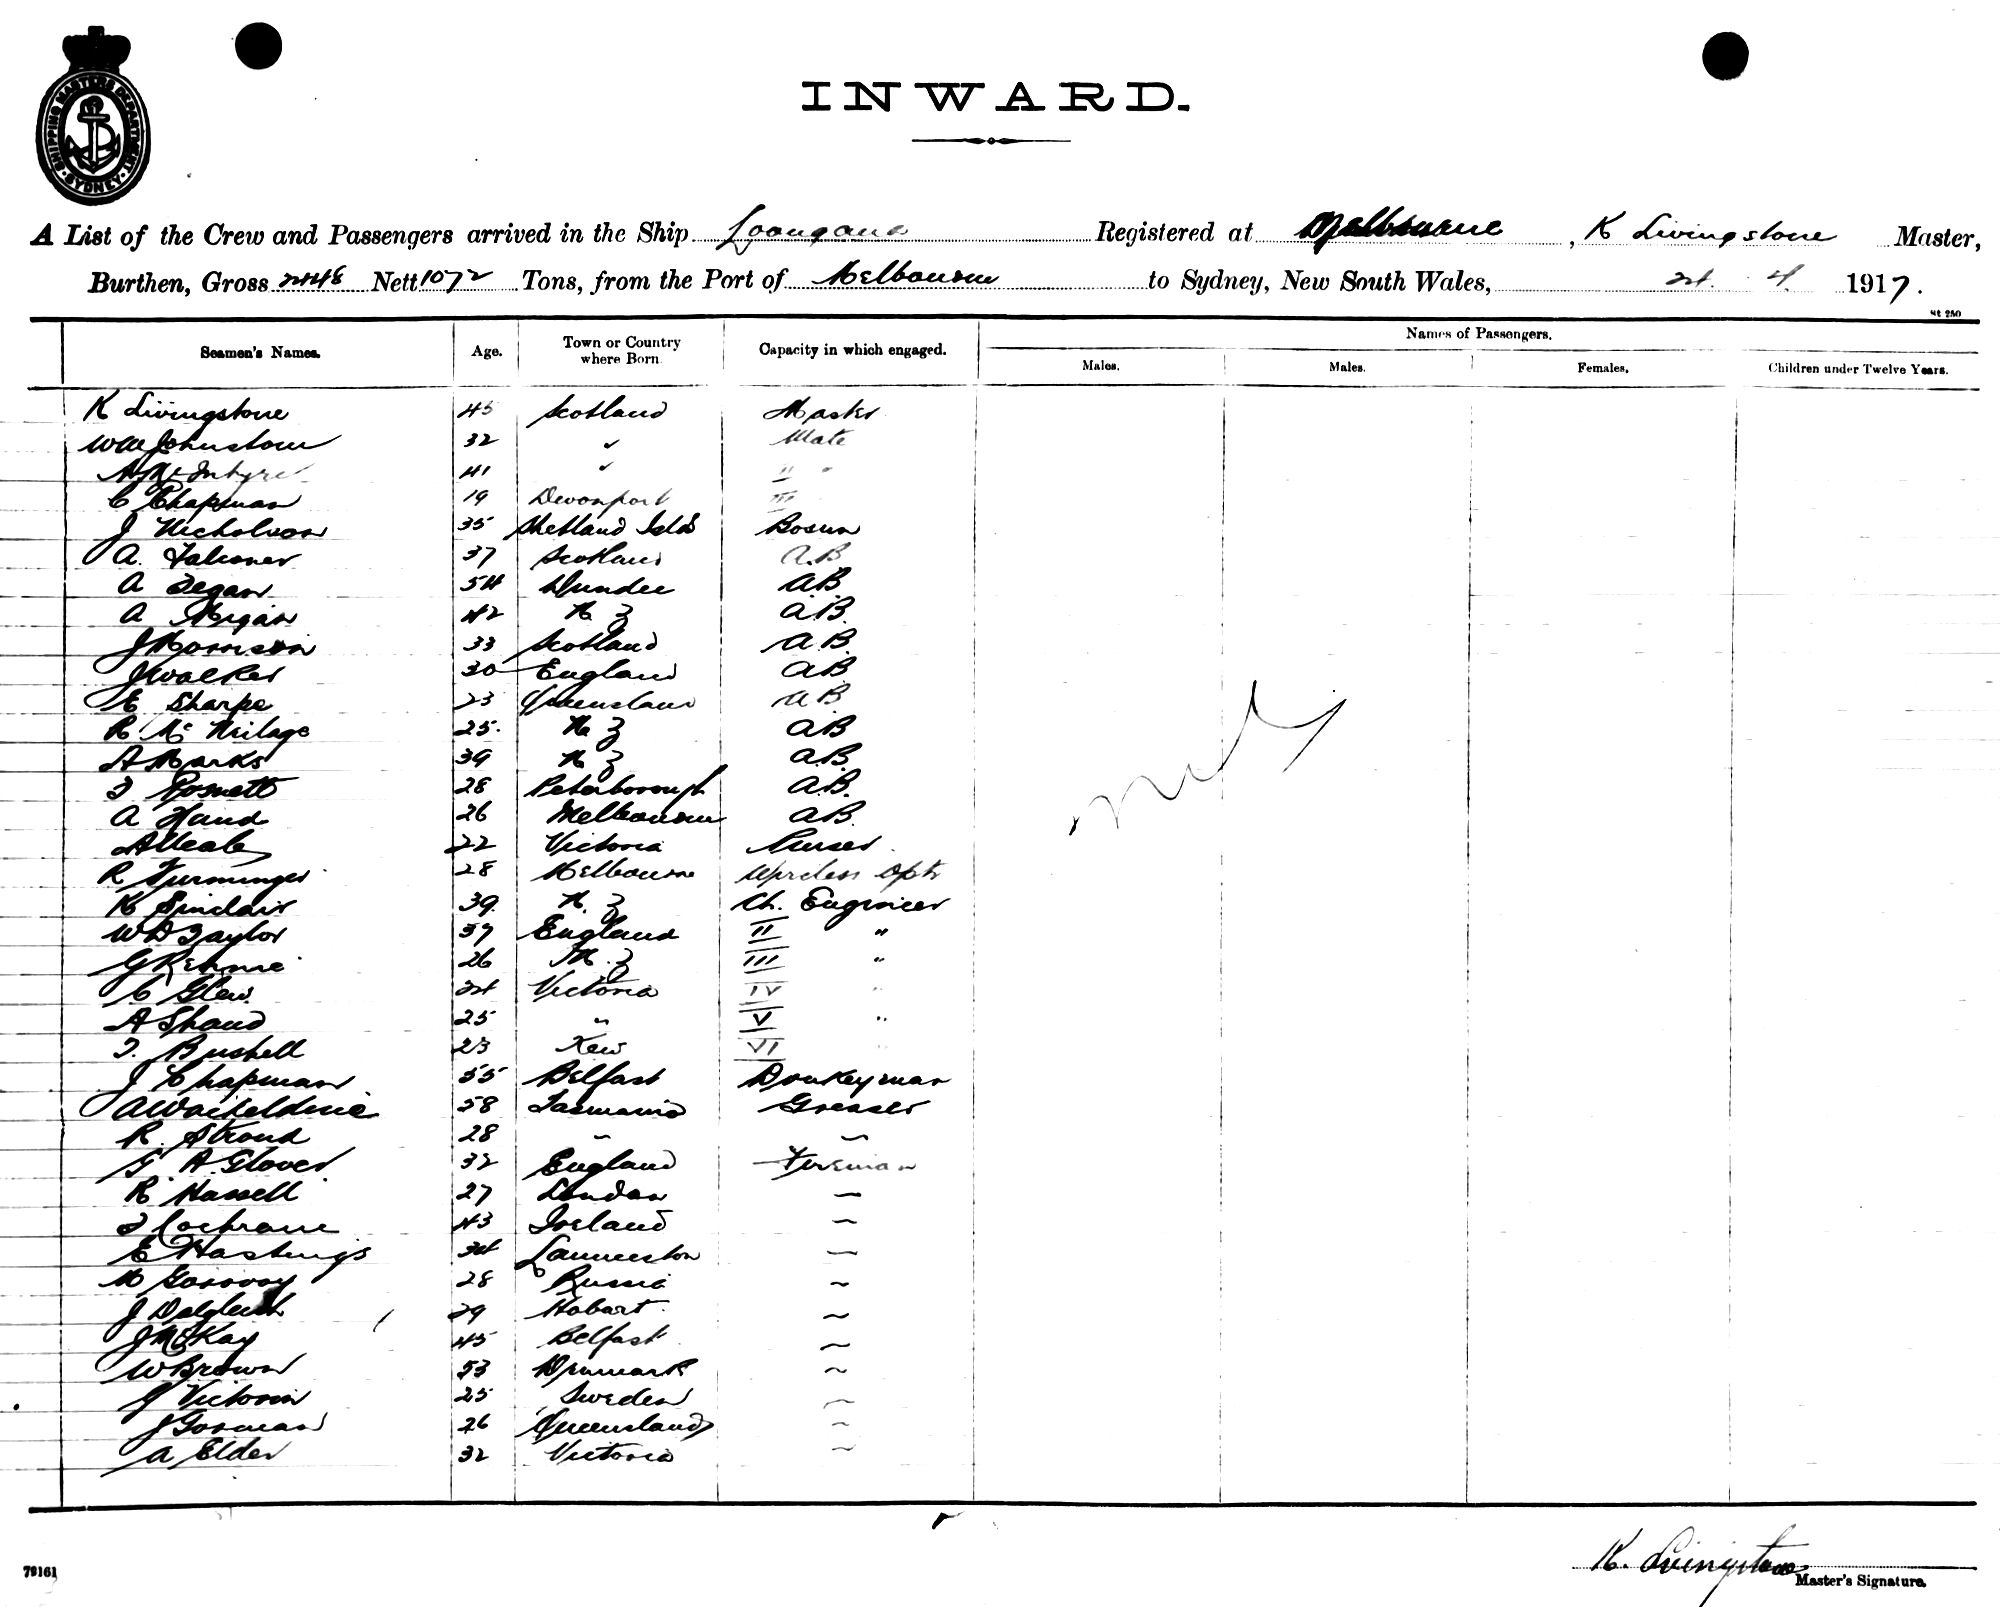 SHIPPING MASTERS DEPARTMENT SYDNEY
INWARD.
A List of the Crew and Passengers arrived in the Ship Loongana Registered at Melbourne, K Livingstone Master,
Burthen, Gross 2448 Nett 1072 Tons, from the Port of Melbourne to Sydney, New South Wales, 24. 4. 1917.
St 250
Seamen's Names. Age. Town or Country where Born. Capacity in which engaged. Names of Passengers.
Males. Males. Females. Children under Twelve Years.
K Livingstone 45 Scotland Master
Wm Johnstone 32 " Mate
A McIntyre 41 " II "
C Chapman 19 Devonport III
J Nicholson 35 Shetland Islds Bosun
A. Falconer 37 Scotland A.B
A Degan 54 Dundee A.B.
A Morgan 42 N Z A.B.
J Morrison 33 Scotland A B.
J Walker 30 England A B
E Sharpe 23 Queensland A B.
R Mc Neilage 25. N Z A B
A Marks 39 N Z A.B.
T Gosnett 28 Peterborough A.B.
A Hand 26 Melbourne A B.
A Neale 22 Victoria Purser
R Turminger 28 Melbourne Wireless Optr
K Sinclair 39. N. Z Ch. Engineer
W D Taylor 37 England II "
G Rennie 26 N. Z III "
C Glew. 24 Victoria IV "
A Shand 25 " V "
T. Bushell 23 Kew VI "
J Chapman 55 Belfast Donkeyman
A 58 Tasmania Greaser
R. Stroud 28 " "
G. A. Glover 32 England Fireman
R Hassell 27 London "
T Cochrane 43 Ireland "
E Hastings 34 Launceston "
M 28 Russia "
J Dalgleish 29 Hobart "
J McKay 45 Belfast "
W Brown 53 Denmark "
J Victorin 25 Sweden "
J Gorman 26 Queensland "
A Elder 32 Victoria "
nil
K. Livingstone
Master's Signature.
79161